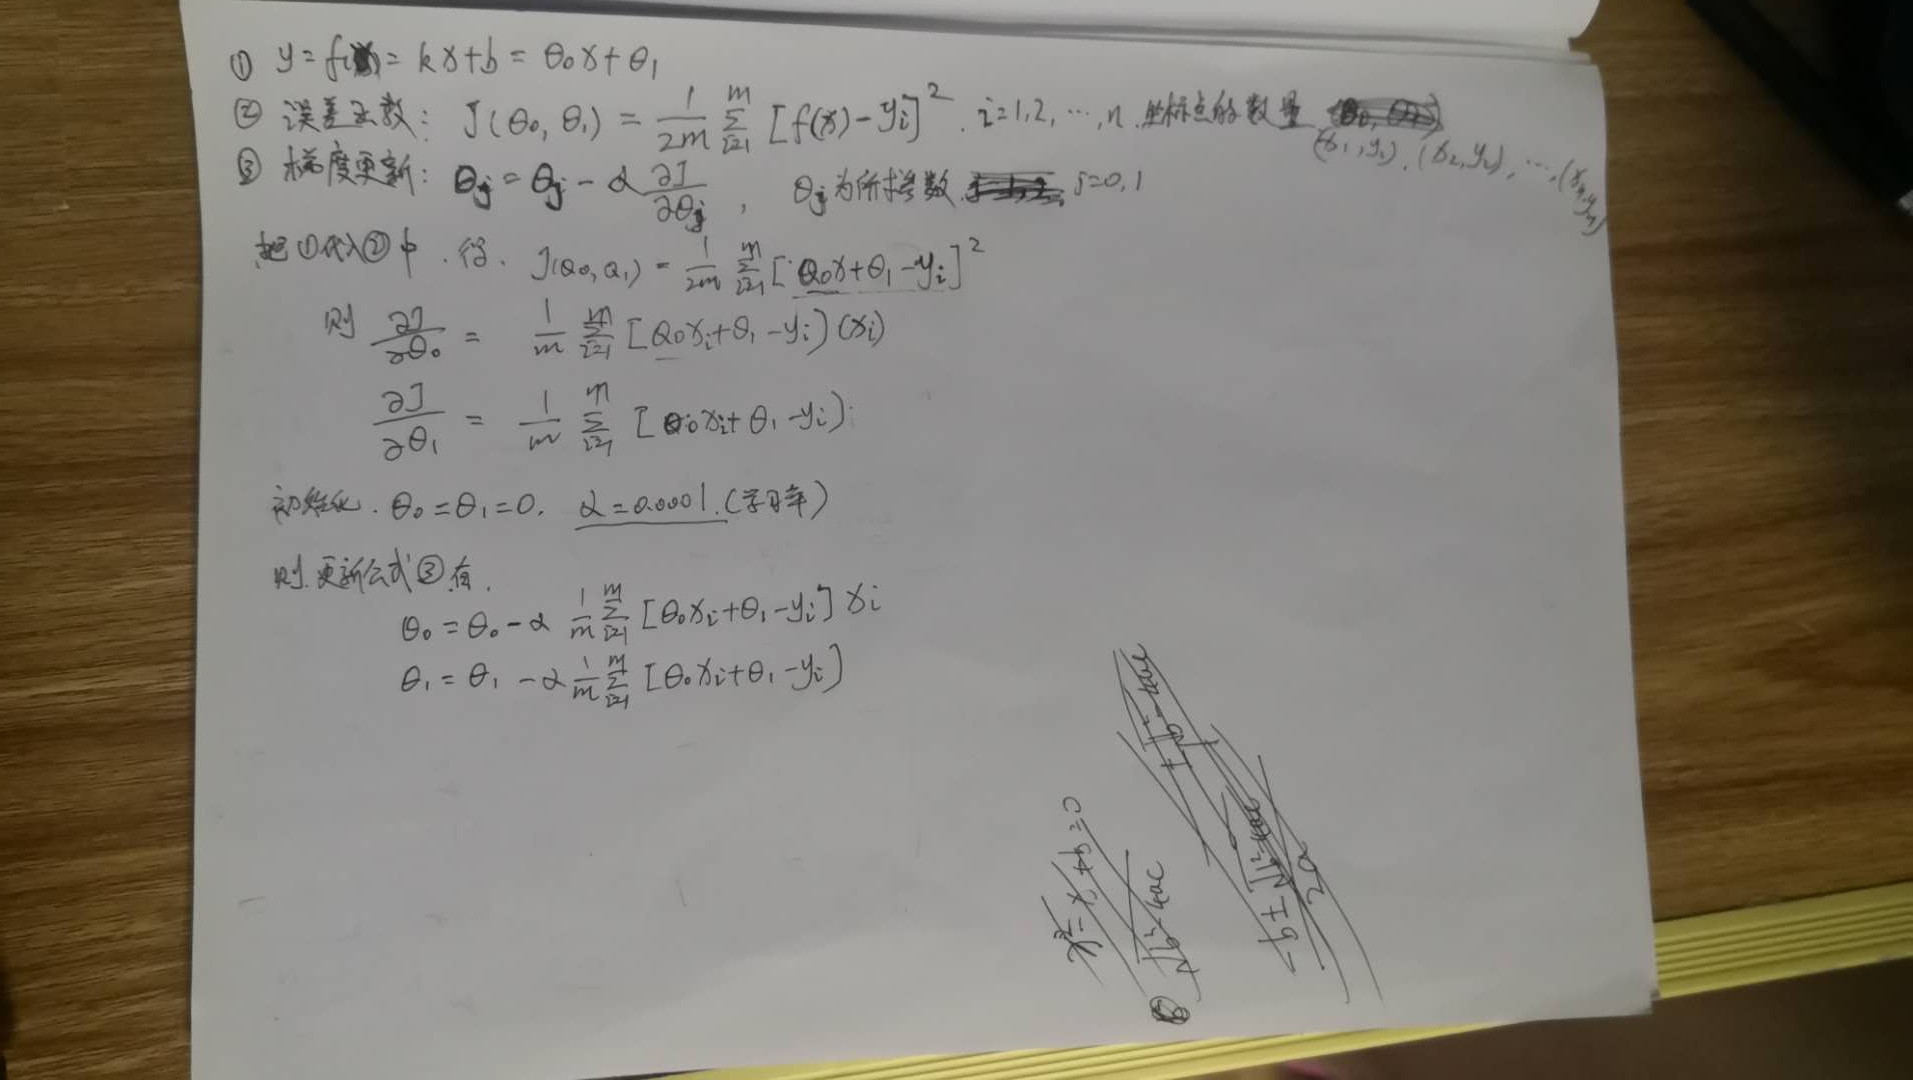 ① y=f(x)=kx+b=θ₀x+θ₁
② 误差函数: J(θ₀, θ₁) = 1/2m m∑i=1 [f(x)-yi]². i=1,2,…,n. 坐标点的数量
(x₁,y₁). (x₂,y₂), …,(xn,yn)
③ 梯度更新: θj=θj-α ∂J/∂θj , θj为所求参数. j=0,1
把①代入②中.得. J(θ₀,θ₁) = 1/2m m∑i=1 [θ₀x+θ₁-yi]²
则 ∂J/∂θ₀ = 1/m m∑i=1 [θ₀xi+θ₁-yi)(xi)
∂J/∂θ₁ = 1/m m∑i=1 [θ₀xi+θ₁-yi)
初始化. θ₀=θ₁=0. α=0.0001.(学习率)
则.更新公式③有.
θ₀=θ₀-α 1/m m∑i=1 [θ₀xi+θ₁-yi]xi
θ₁=θ₁-α 1/m m∑i=1 [θ₀xi+θ₁-yi]
±√b²-4ac
-b±√b²-4ac/2a
√b²-4ac